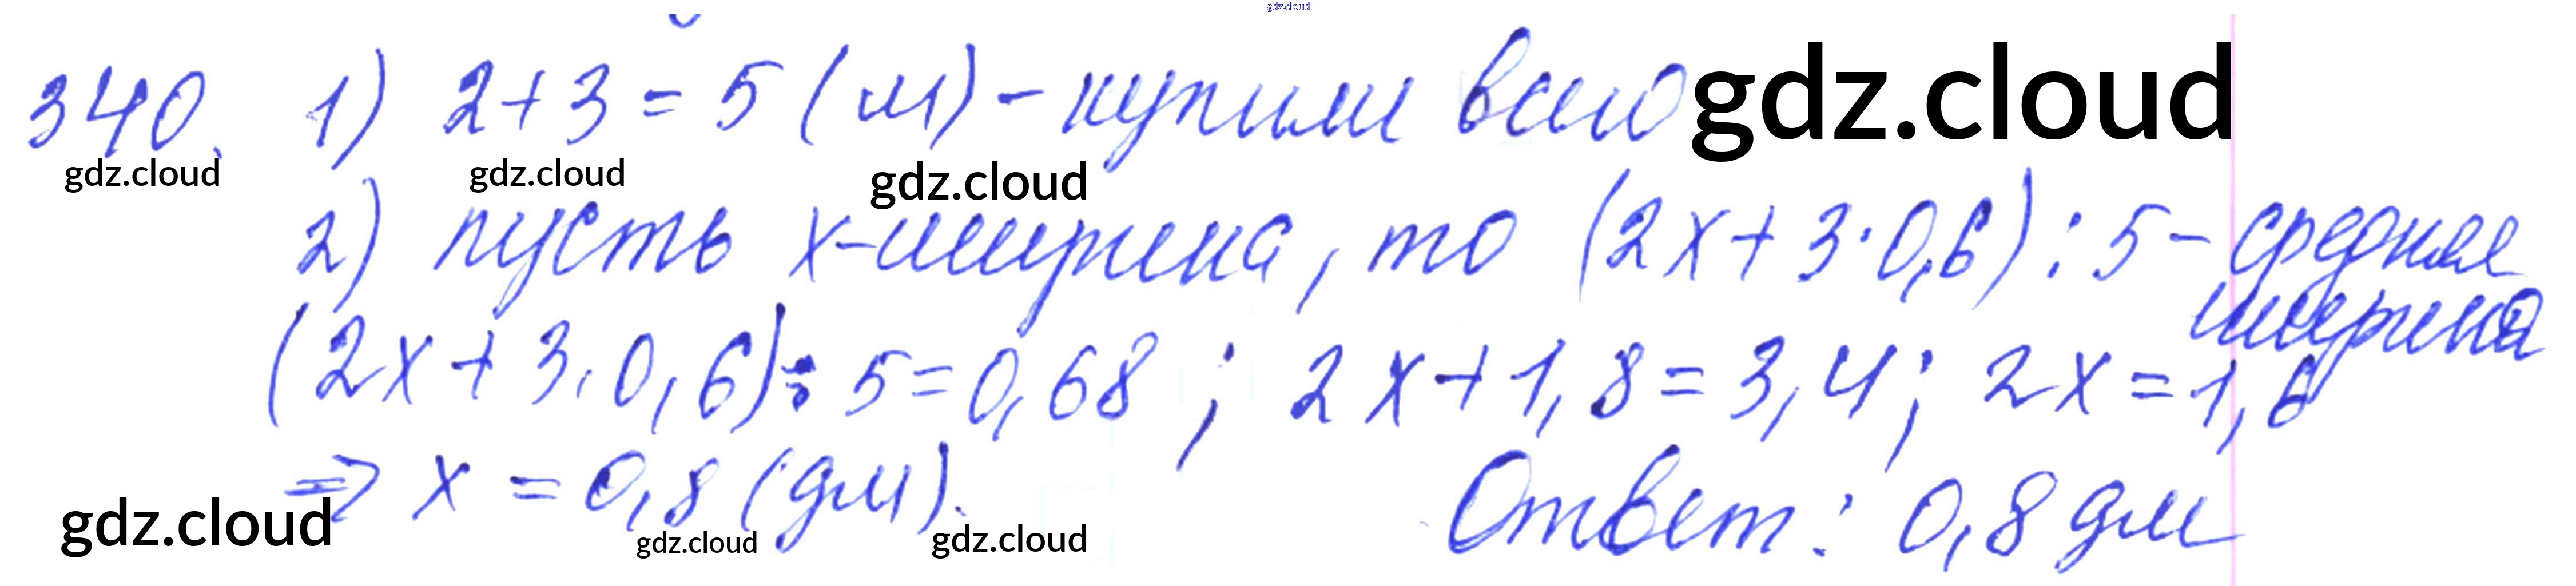 gdz.cloud
340. 1) 2+3=5 (м) - купили всего gdz.cloud
gdz.cloud gdz.cloud gdz.cloud
2) пусть x-ширина, то (2x+3·0,6):5 - средняя
ширина
(2x+3·0,6):5=0,68; 2x+1,8=3,4; 2x=1,6
⇒ x = 0,8 (дм). Ответ: 0,8 дм
gdz.cloud gdz.cloud gdz.cloud